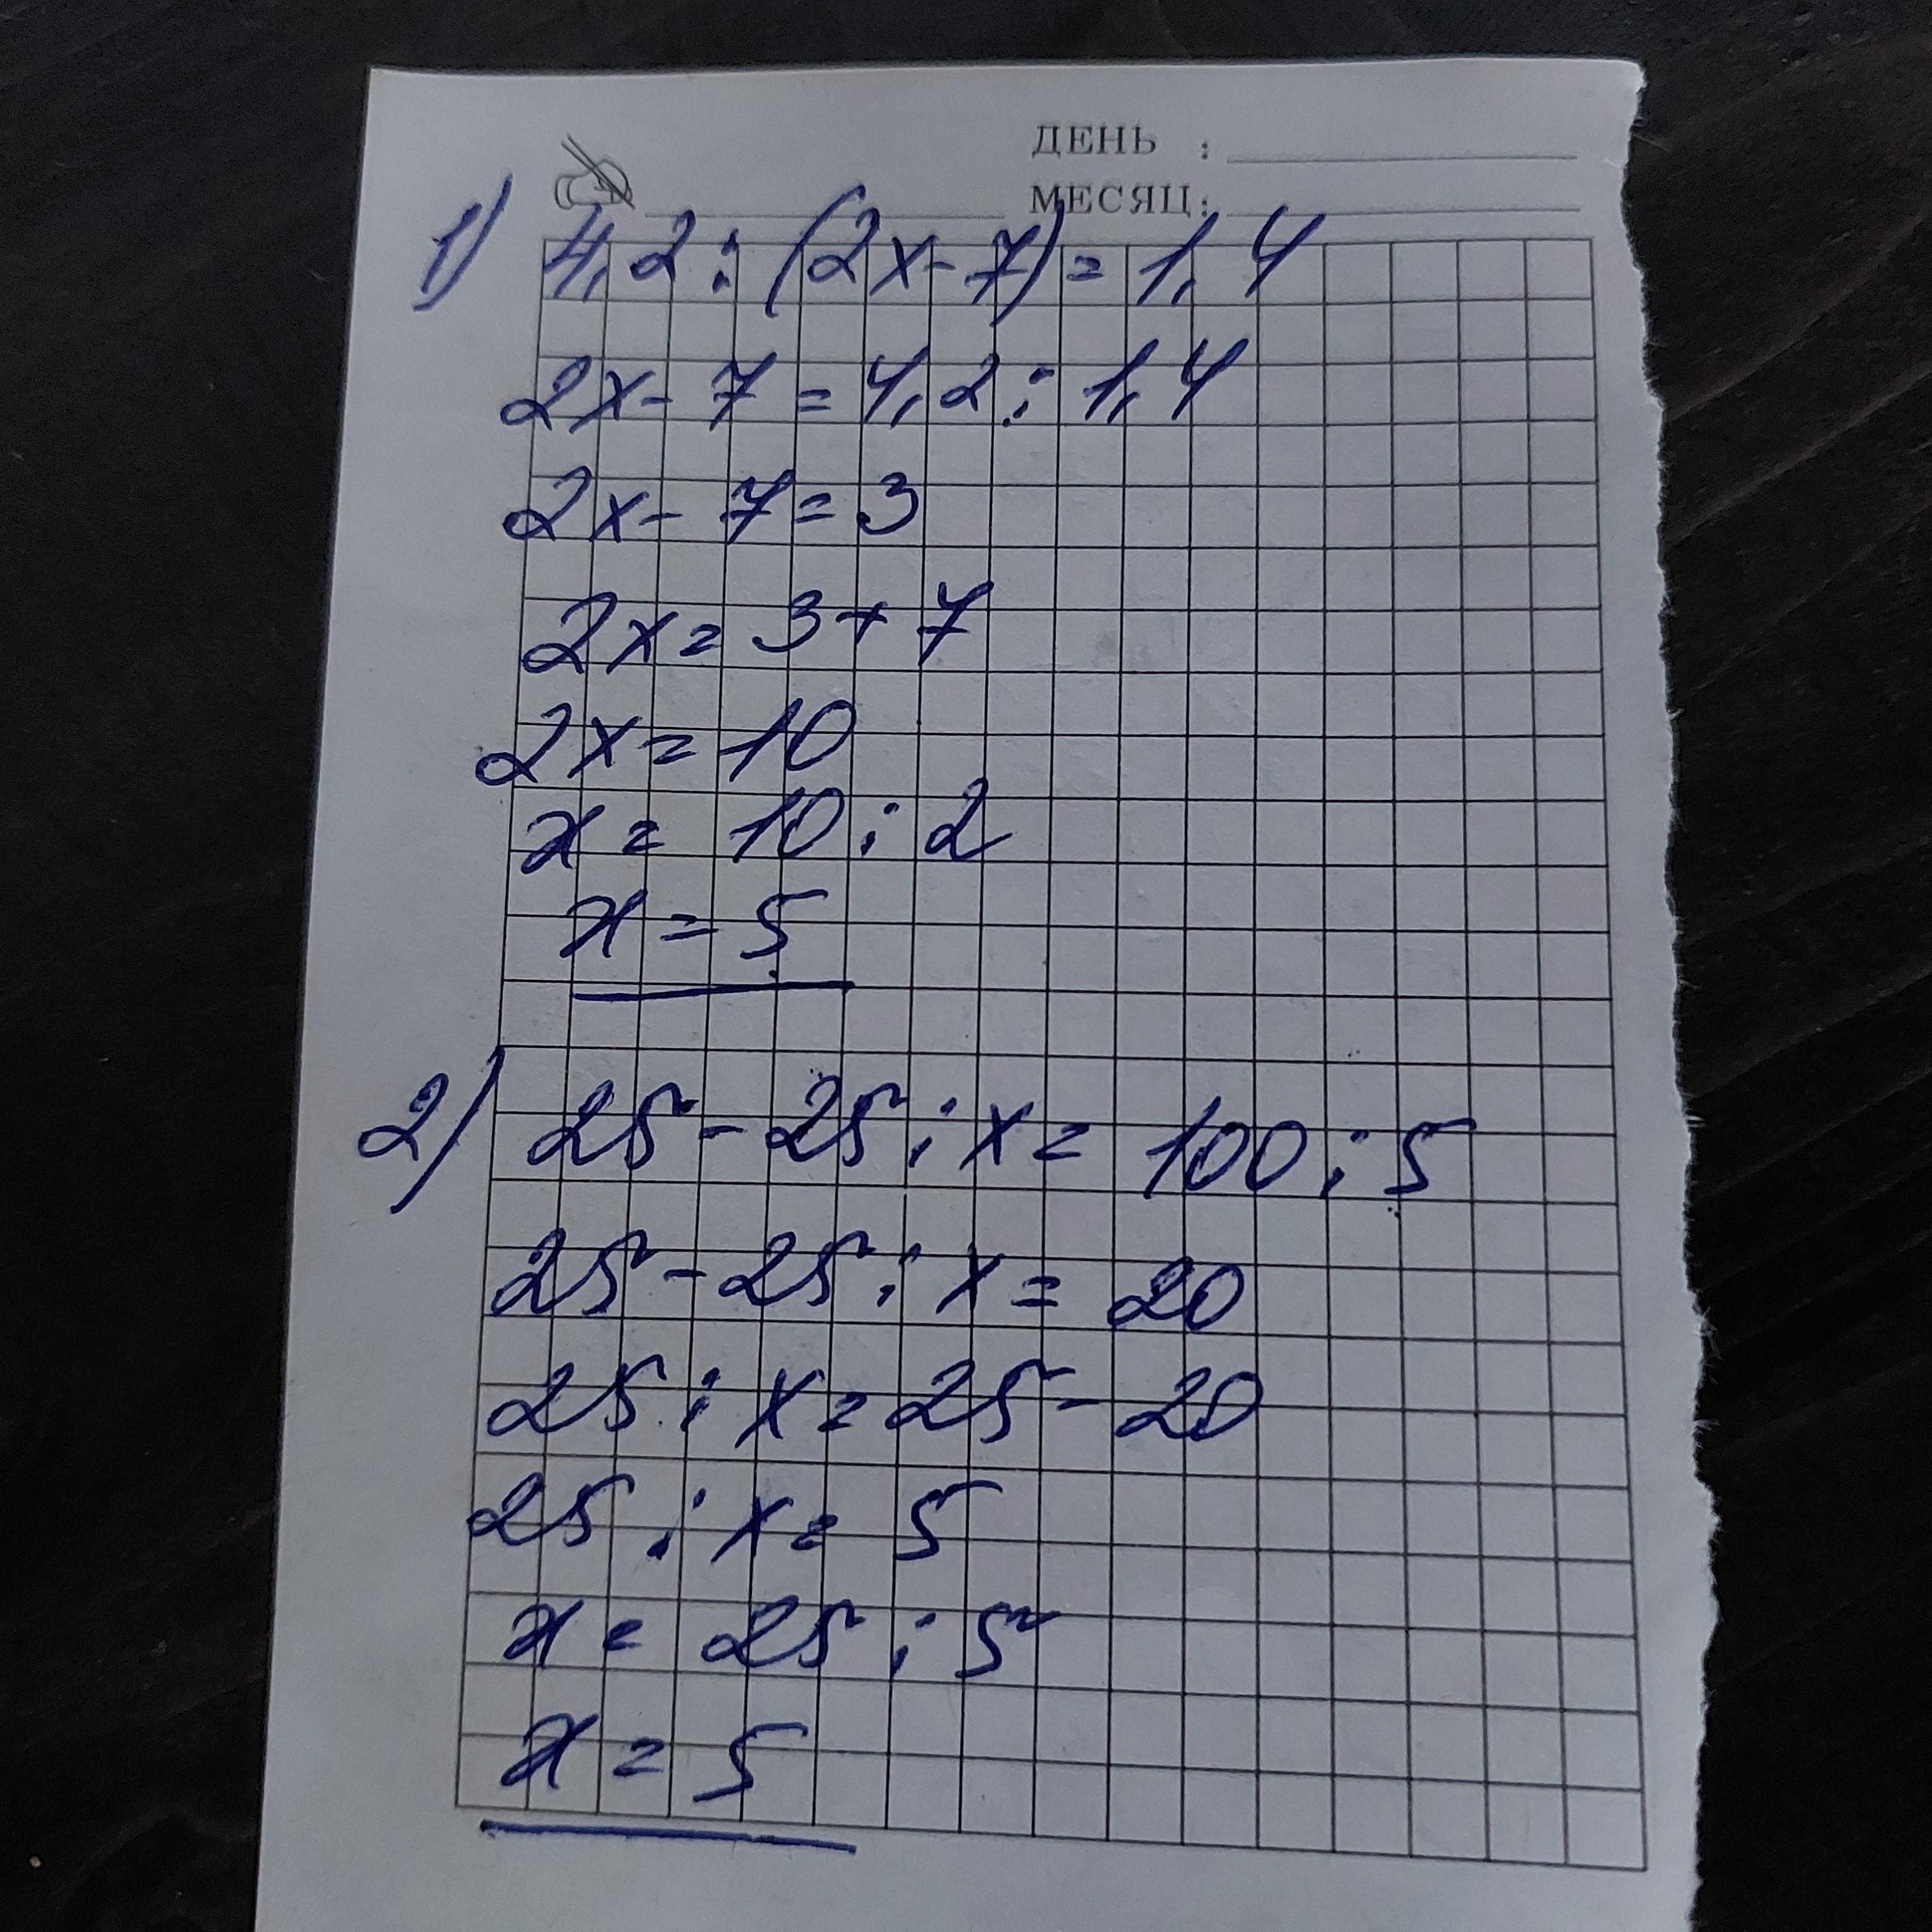 ДЕНЬ :
МЕСЯЦ:
1) 4,2 : (2x - 7) = 1,4
2x - 7 = 4,2 : 1,4
2x - 7 = 3
2x = 3 + 7
2x = 10
x = 10 : 2
x = 5
2) 25 - 25 : x = 100 : 5
25 - 25 : x = 20
25 : x = 25 - 20
25 : x = 5
x = 25 : 5
x = 5